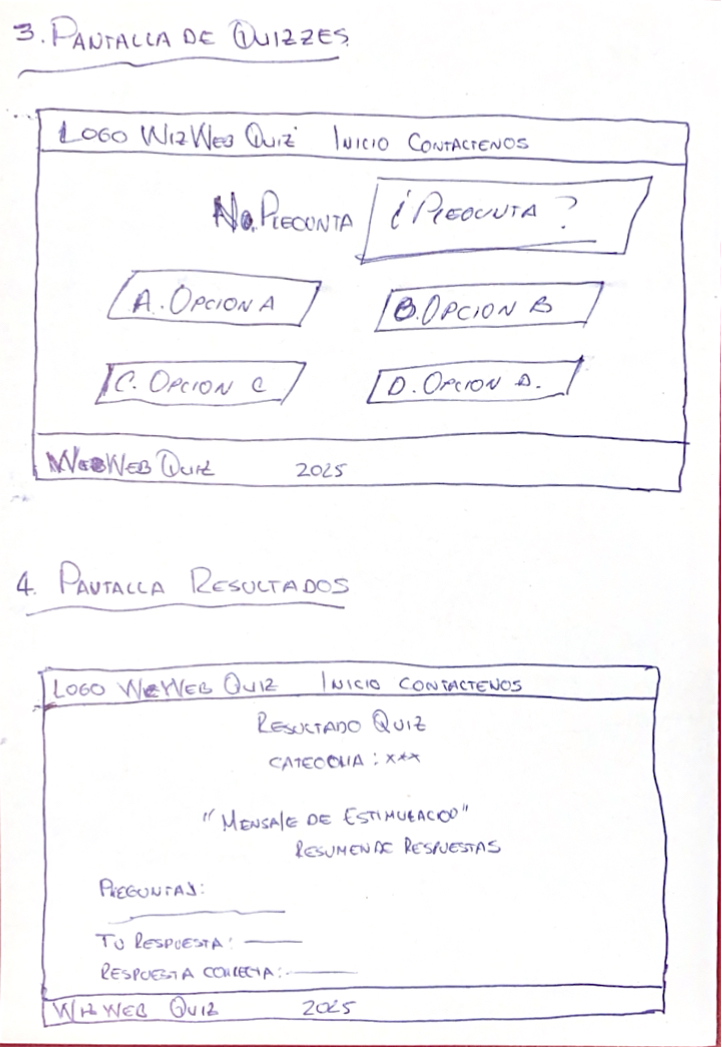 3. PANTALLA DE QUIZZES
LOGO WIZWEB QUIZ INICIO CONTACTENOS
No. PREGUNTA ¿PREGUNTA?
A. OPCION A
B. OPCION B
C. OPCION C
D. OPCION D.
WEBWEB QUIZ 2025
4. PANTALLA RESULTADOS
LOGO WIZWEB QUIZ INICIO CONTACTENOS
RESULTADO QUIZ
CATEGORIA: xxx
"MENSAJE DE ESTIMULACIOO"
RESUMEN DE RESPUESTAS
PREGUNTAS:
TU RESPUESTA:
RESPUESTA CORRECTA:
WIZ WEB QUIZ 2025